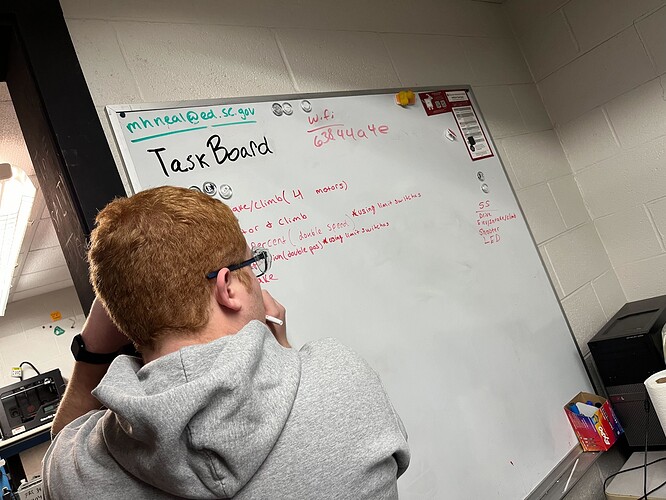 mhneal@ed.sc.gov
Wifi
63844a4e
Task Board
/Climb(4 motors)
& Climb
Percent (double speed) *using limit switches
(double pos) *using limit switches
SS
Drive
Shooter
LED